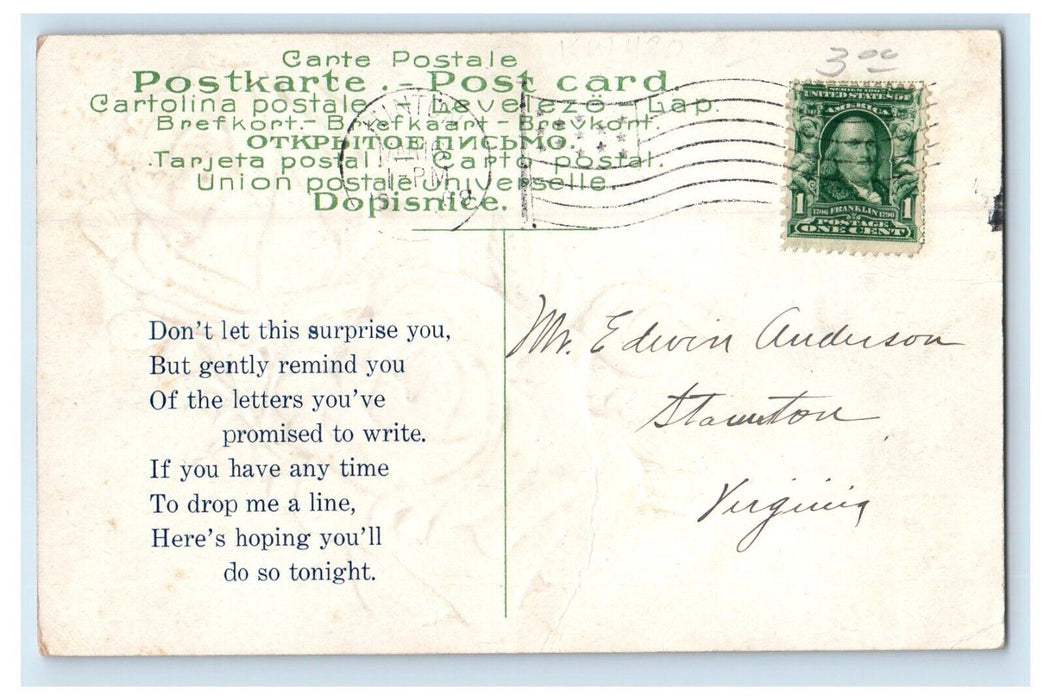 3.00
Carte Postale
Postkarte. - Post card.
Cartolina postale. - Levelező - Lap.
Brefkort. - Briefkaart - Brevkort.
ОТКРЫТОЕ ПИСЬМО.
Tarjeta postal. - Carto postal.
Union postale universelle.
Dopisnice.
PM
SERIES 1902
UNITED STATES OF
AMERICA
1 1
1706 FRANKLIN 1790
POSTAGE
ONE CENT
Don't let this surprise you,
But gently remind you
Of the letters you've
promised to write.
If you have any time
To drop me a line,
Here's hoping you'll
do so tonight.
Mr. Edwin Anderson
Staunton
Virginia